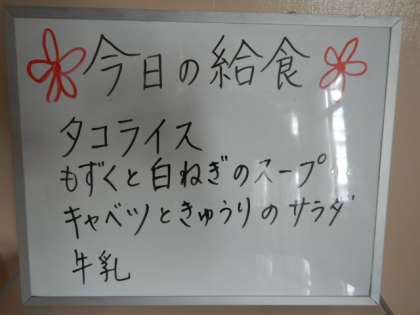 今日の給食
タコライス
もずくと白ねぎのスープ
キャベツときゅうりのサラダ
牛乳